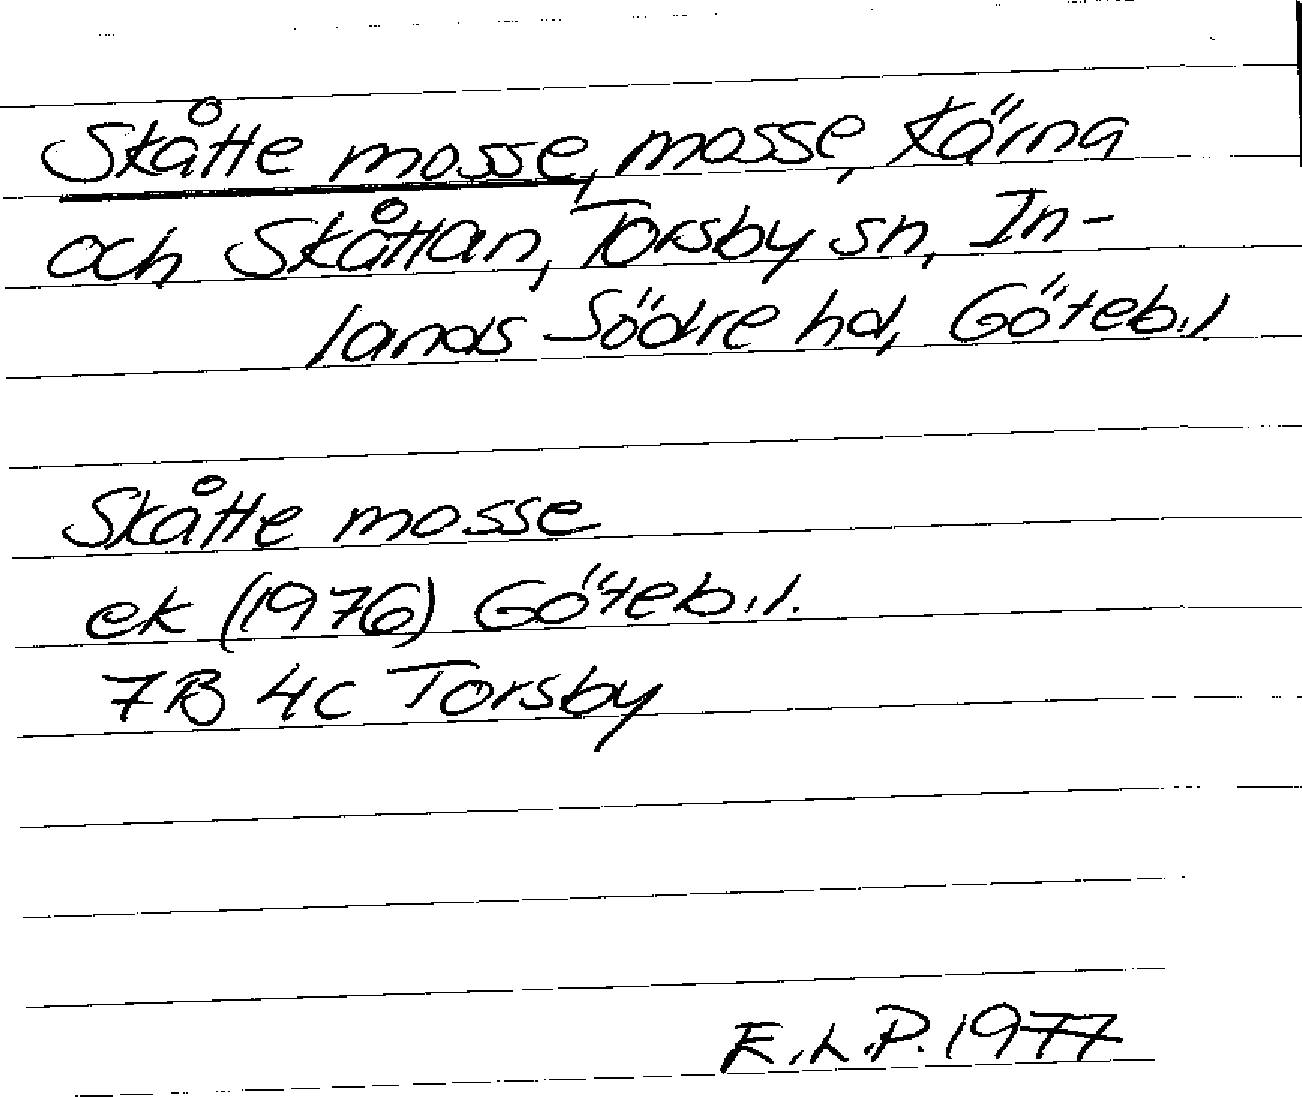 Skåtte mosse, mosse, Kärna
och Skåttan, Torsby sn, In-
lands Södre hd, Göteb.l
Skåtte mosse
ek (1976) Göteb.l.
7B 4c Torsby
E.L.P. 1977